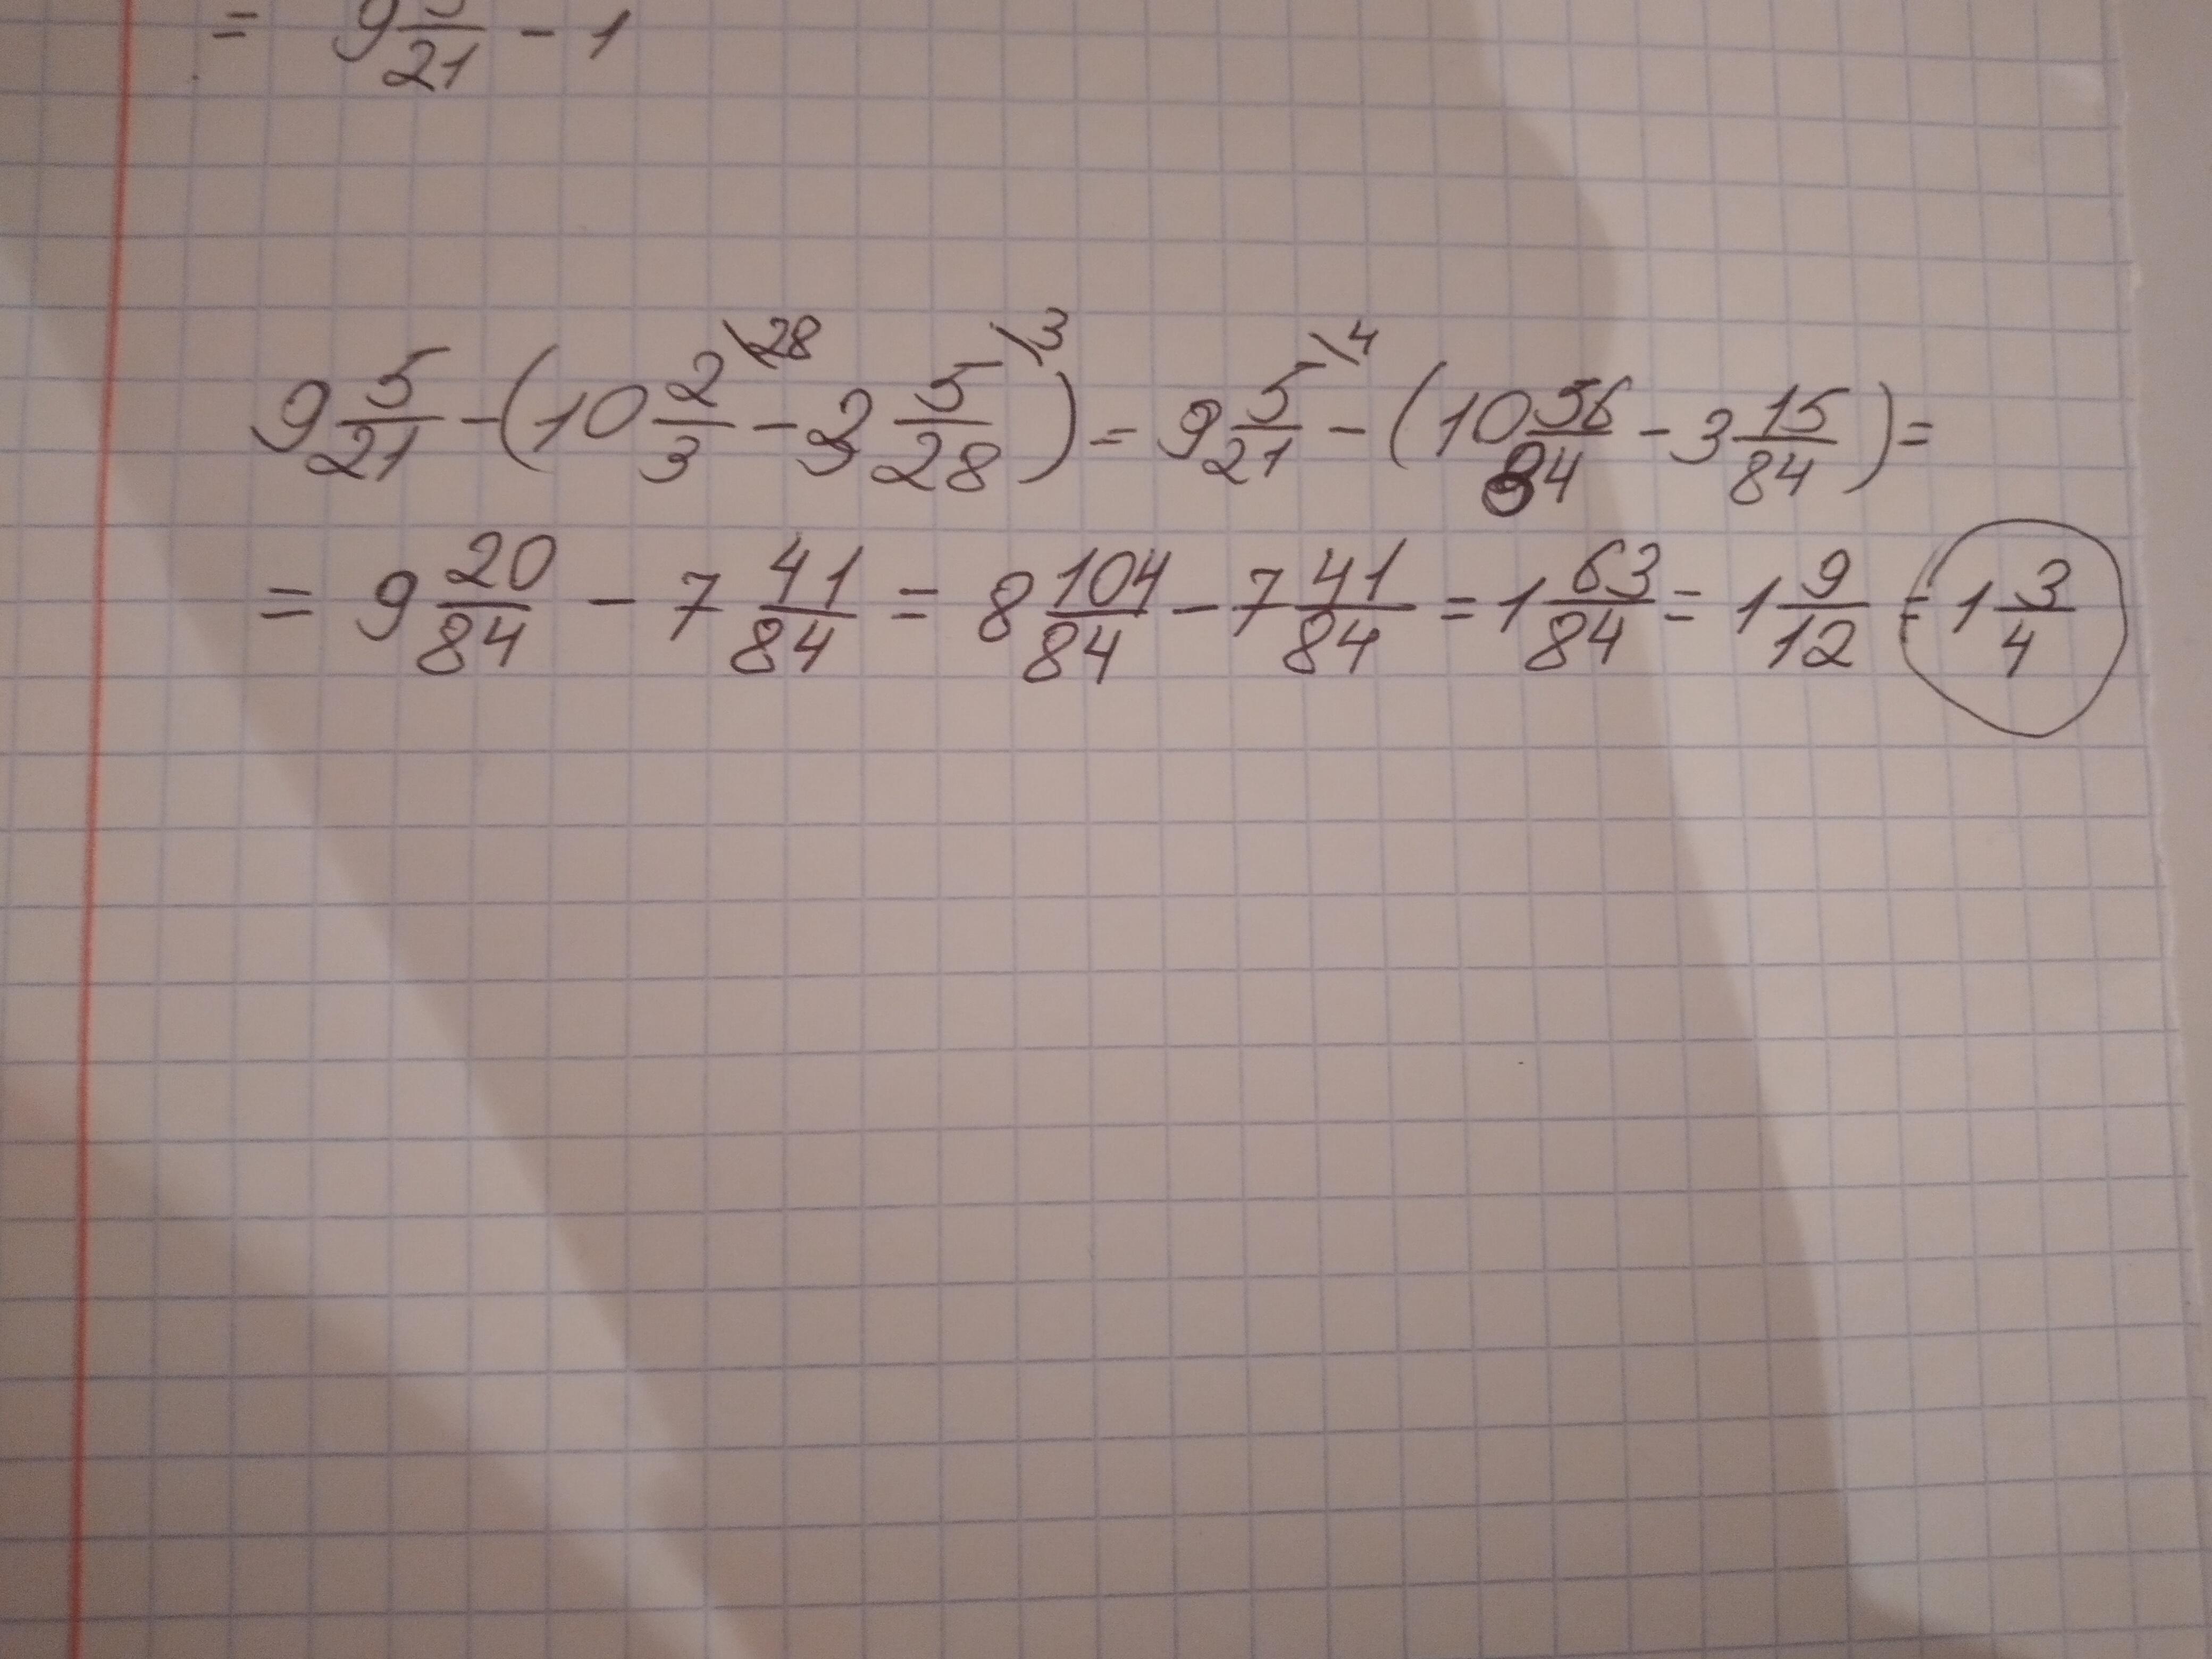 = 9 5/21 - 1
9 5/21 - (10 2/3 \28 - 3 5/28 \3) = 9 5/21 \4 - (10 56/84 - 3 15/84) =
= 9 20/84 - 7 41/84 = 8 104/84 - 7 41/84 = 1 63/84 = 1 9/12 = 1 3/4